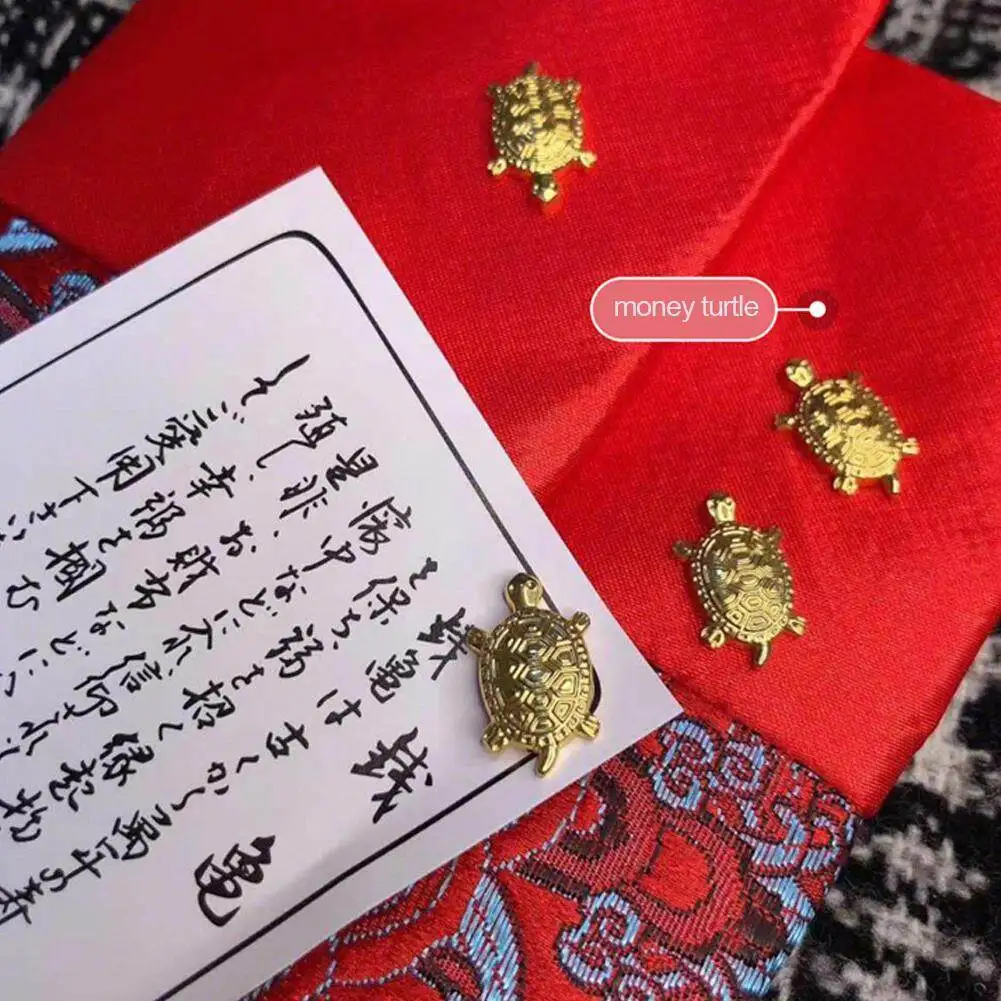 money turtle
銭亀
銭亀は古くから萬年の寿
を保ち福を招く縁起物
懐中などに入れ信仰され
是非、お財布などに
幸福を掴む
ご愛用下さい